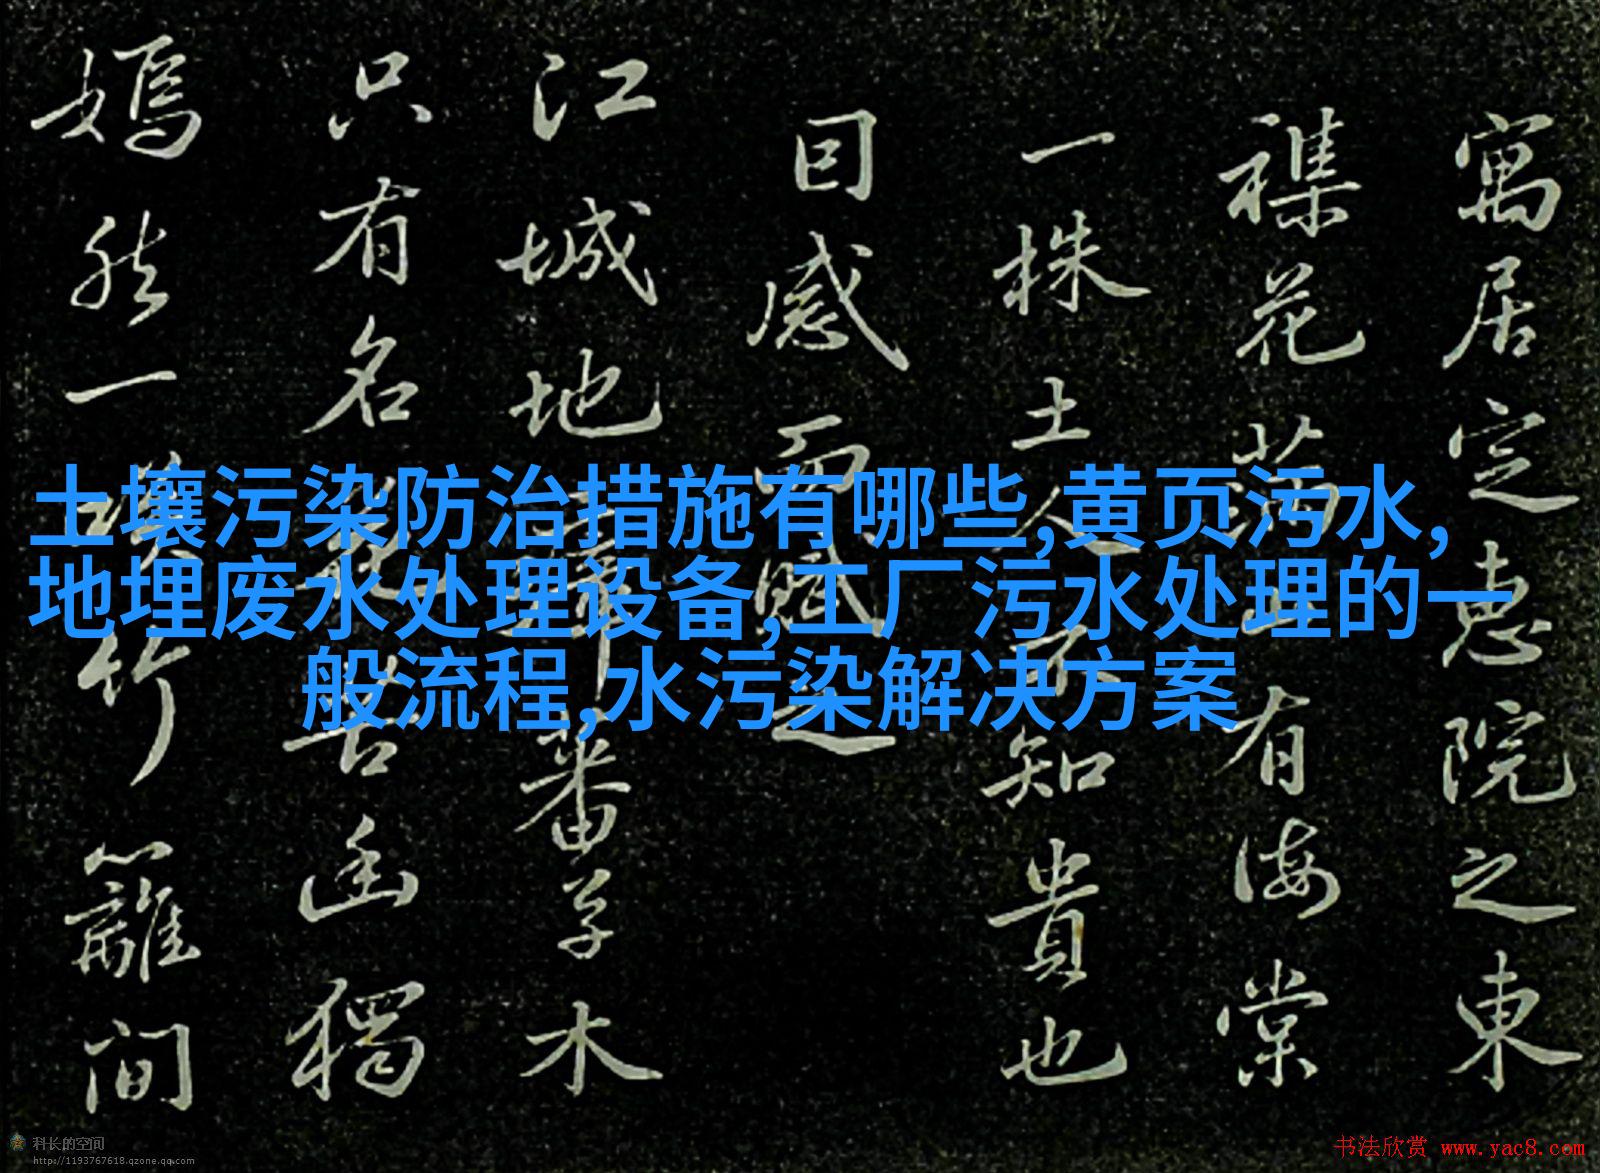 寓居定惠院之東
襍花滿山有海棠
一株土人不知貴也
囙感而賦之
江城地瘴蕃草木
只有名花苦幽獨
嫣然一笑竹籬間
土壤污染防治措施有哪些,黄页污水,
地埋废水处理设备,工厂污水处理的一
般流程,水污染解决方案
科长的空间
http://1193767618.qzone.qq.com
书法欣赏 www.yac8.com